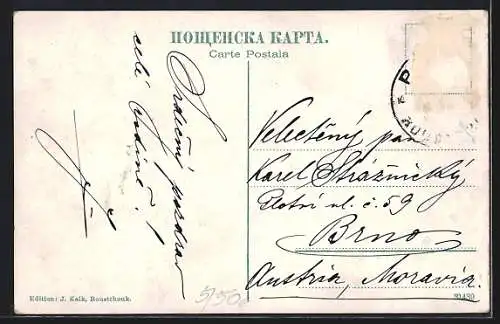 ПОЩЕНСКА КАРТА.
Carte Postala
Srdečný pozdrav
celé rodině!
Velectěný pan
Karel Strážnický
ul. č. 59
Brno
Austria, Moravia.
Edition: J. Kalk, Roustchouk.
5/50